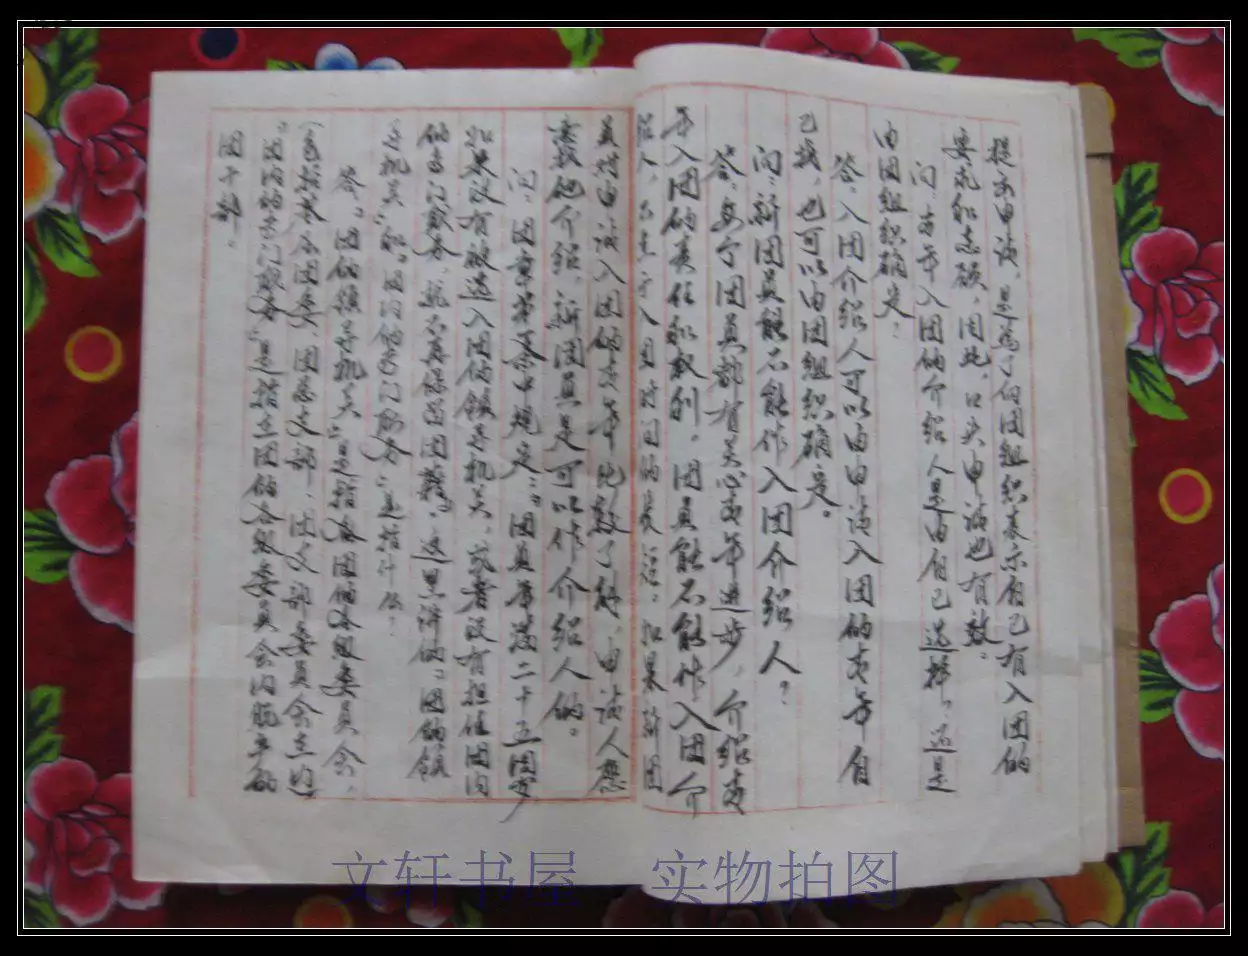 提出申请，是为了向团组织表示自己有入团的
要求和志愿，因此，口头申请也有效。
问：青年入团的介绍人是由自己选择，还是
由团组织确定？
答：入团介绍人可以由申请入团的青年自
己找，也可以由团组织确定。
问：新团员能不能作入团介绍人？
答：每个团员都有关心青年进步，介绍青
年入团的责任和权利。团员能不能作入团介
绍人，不在于入团时间的长短。如果新团
员对申请入团的青年比较了解，申请人应
要找他介绍，新团员是可以作介绍人的。
问：团章第 条中规定：“团员年满二十五周岁
如果没有被选入团的领导机关，或者没有担任团内
的专门职务，就不再保留团籍”，这里讲的“团的领
导机关”和“团内的专门职务”是指什么？
答：“团的领导机关”是指 团的各级委员会，
（包括基层团委、团总支部、团支部委员会在内
“团内的专门职务”是指在团的各级委员会内脱产的
团干部。
文轩书屋 实物拍图